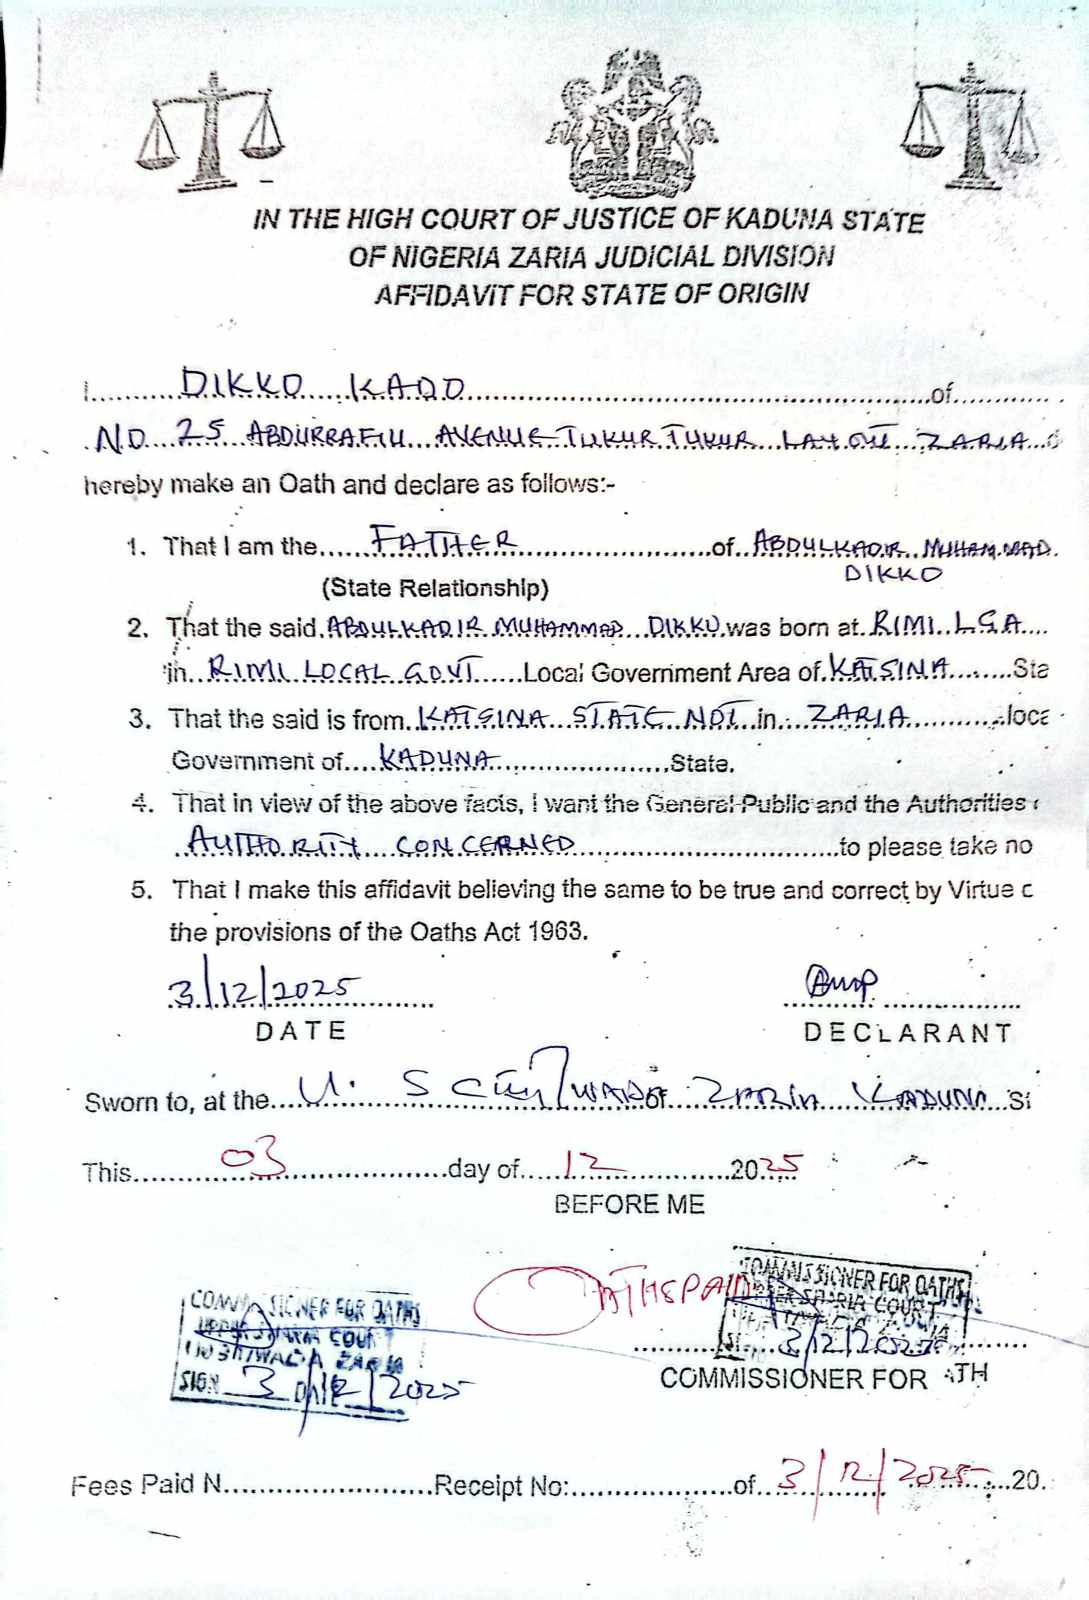 IN THE HIGH COURT OF JUSTICE OF KADUNA STATE
OF NIGERIA ZARIA JUDICIAL DIVISION
AFFIDAVIT FOR STATE OF ORIGIN
I..........DIKKO KADO..........of..........
NO 25 ABDURRAFIU AVENUE TUKUR TUKUR LAYOUT ZARIA
hereby make an Oath and declare as follows:-
1. That I am the......FATHER..........of..ABDULKADIR MUHAMMAD
DIKKO
(State Relationship)
2. That the said.ABDULKADIR MUHAMMAD DIKKO.was born at.RIMI LGA....
in..RIMI LOCAL GOVT......Local Government Area of.KATSINA........Sta
3. That the said is from.KATSINA STATE NOT in...ZARIA..........loca
Government of....KADUNA..........State.
4. That in view of the above facts, I want the General Public and the Authorities
..AUTHORITY CONCERNED..........to please take no
5. That I make this affidavit believing the same to be true and correct by Virtue
the provisions of the Oaths Act 1963.
3/12/2025
DATE
DECLARANT
Sworn to, at the....U. S C of ZARIA KADUNA St
This..........03..........day of.....12..........2025
BEFORE ME
OATHS PAID
COMMISSIONER FOR OATHS
UPPER SHARIA COURT
ZARIA
3/12/2025
COMMISSIONER FOR OATHS
UPPER SHARIA COURT
ZARIA
SIGN 3 DATE /12/2025
COMMISSIONER FOR ATH
Fees Paid N..........Receipt No:..........of..3/12/2025....20.